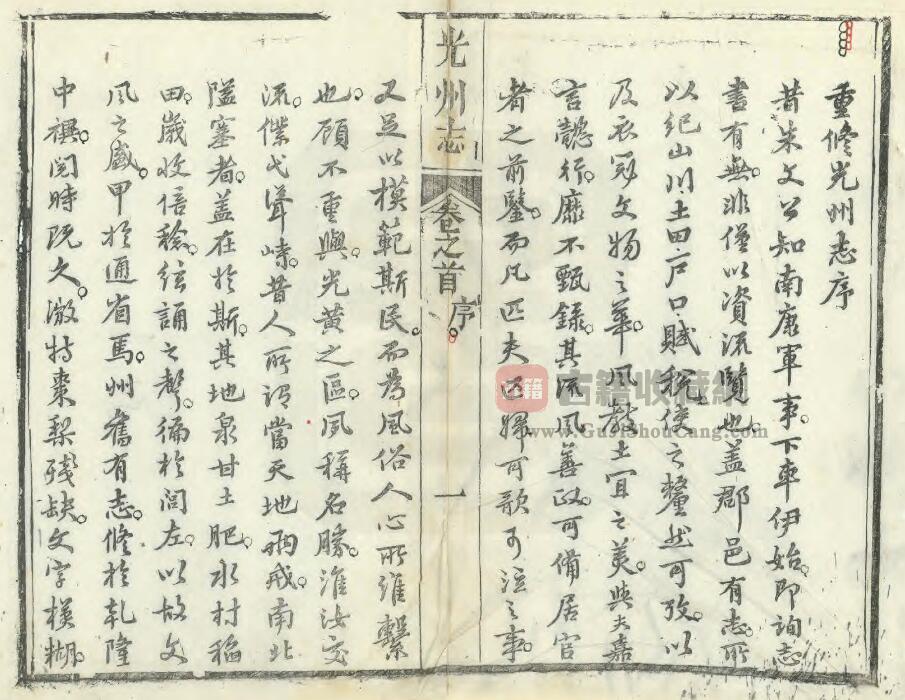 重修光州志序
昔朱文公知南康軍事下車伊始即詢志
書有無非僅以資流覽也蓋郡邑有志所
以紀山川土田戶口賦稅使之釐然可攷以
及衣冠文物之華風教土宜之美與夫嘉
言懿行靡不甄錄其流風善政可備居官
者之前鑒而凡匹夫匹婦可歌可泣之事
光州志
卷之首
序
一
又足以模範斯民而為風俗人心所維繫
也顧不重與光黃之區夙稱名勝淮汝交
流僕弋聳峙昔人所謂當天地兩戒南北
隘塞者蓋在於斯其地泉甘土肥水村稻
田歲收倍稔絃誦之聲徧於閭左以故文
風之盛甲於通省焉州舊有志修於乾隆
中禩閱時既久漵特棗梨殘缺文字模糊
古籍
古籍收藏
www.GujiShouCang.com